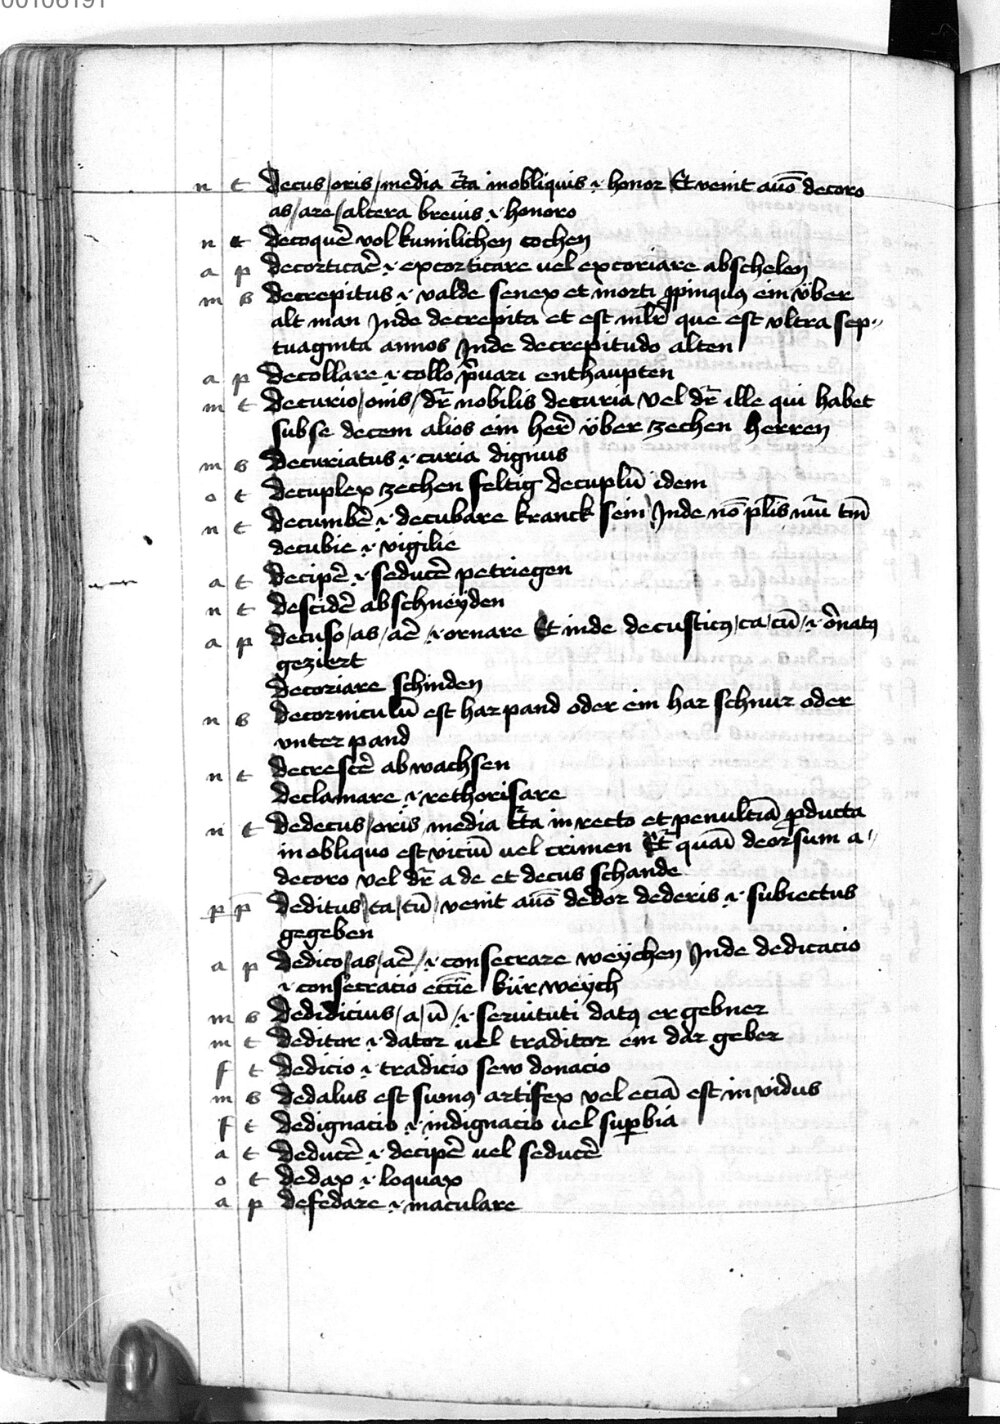 00106191
n t Decus/oris/media cͬta in obliquis .i. honor Et venit aūo decoro
as/are/altera brevis .i. honoro
n t Decoquē vol kumilichen cochen
a p Decorticaē .i. excorticare vel excoriare abschelen
m s Decrepitus .i. valde senex et morti ꝓpinquꝰ ein über
alt man Inde decrepita et est mlͬr que est vltra sep〃
tuaginta annos Inde decrepitudo alten
a p Decollare .i. collo p̄uari enthaupten
m t Decurio/onis/dr̄ nobilis decuria vel dr̄ ille qui habet
sub se decem alios ein herꝰ über zechen herren
m s Decuriatus .i. curia dignus
o t Decuplex zechen feltig decuplū idem
n t Decumbē .i. decubare kranck sein Inde nō plīs nūi tm̄
decubie .i. vigilie
a t Decipē .i. seducē petriegen
n t Descidē abschneyden
a p Decuso/as/aē/.i. ornare Et inde decusticꝰ/ca/cū/.i. ōnatꝰ
geziert
Decoriare schinden
n s Decorniculū est harpand oder ein har schnur oder
vnter pand
n t Decrescē abwachsen
Declamare .i. rethorisare
n t Dedecus/oris media cͬta in recto et penultiā ꝓducta
in obliquo est viciū vel crimen Et quaī deorsum a〃
decoro vel dr̄ a de et decus schande
p p Deditus/ta/tū/venit aūo dedor dederis .i. subiectus
gegeben
a p Dedico/as/aē/.i. consecrare weychen Inde dedicacio
.i. consecracio ecc̄ie kürweych
m s Dedidicius/a/ū/.i. seruituti datꝰ ergebner
m t Deditor .i. dator vel traditor ein dar geber
f t Dedicio .i. tradicio sew donacio
m s Dedalus est sumꝰ artifex vel eciā est invidus
f t Dedignacio .i. indignacio vel suꝑbia
a t Deducē .i. decipē vel seducē
o t Dedax .i. loquax
a p Defedare .i. maculare